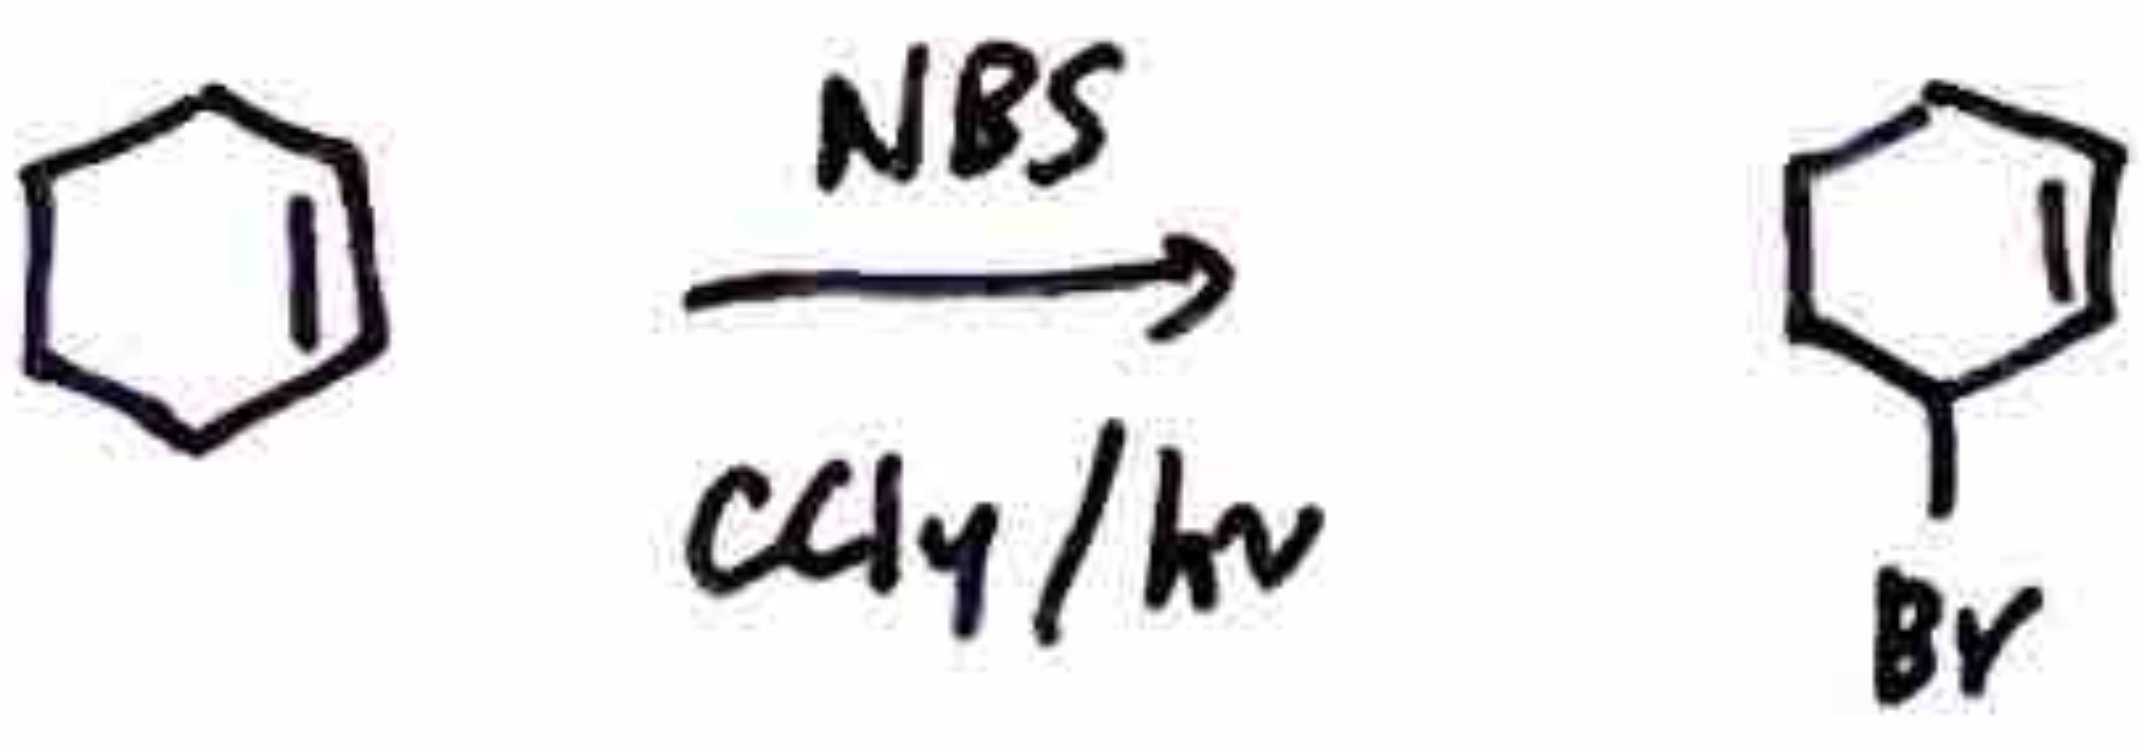 NBS
CCl4/hν
Br